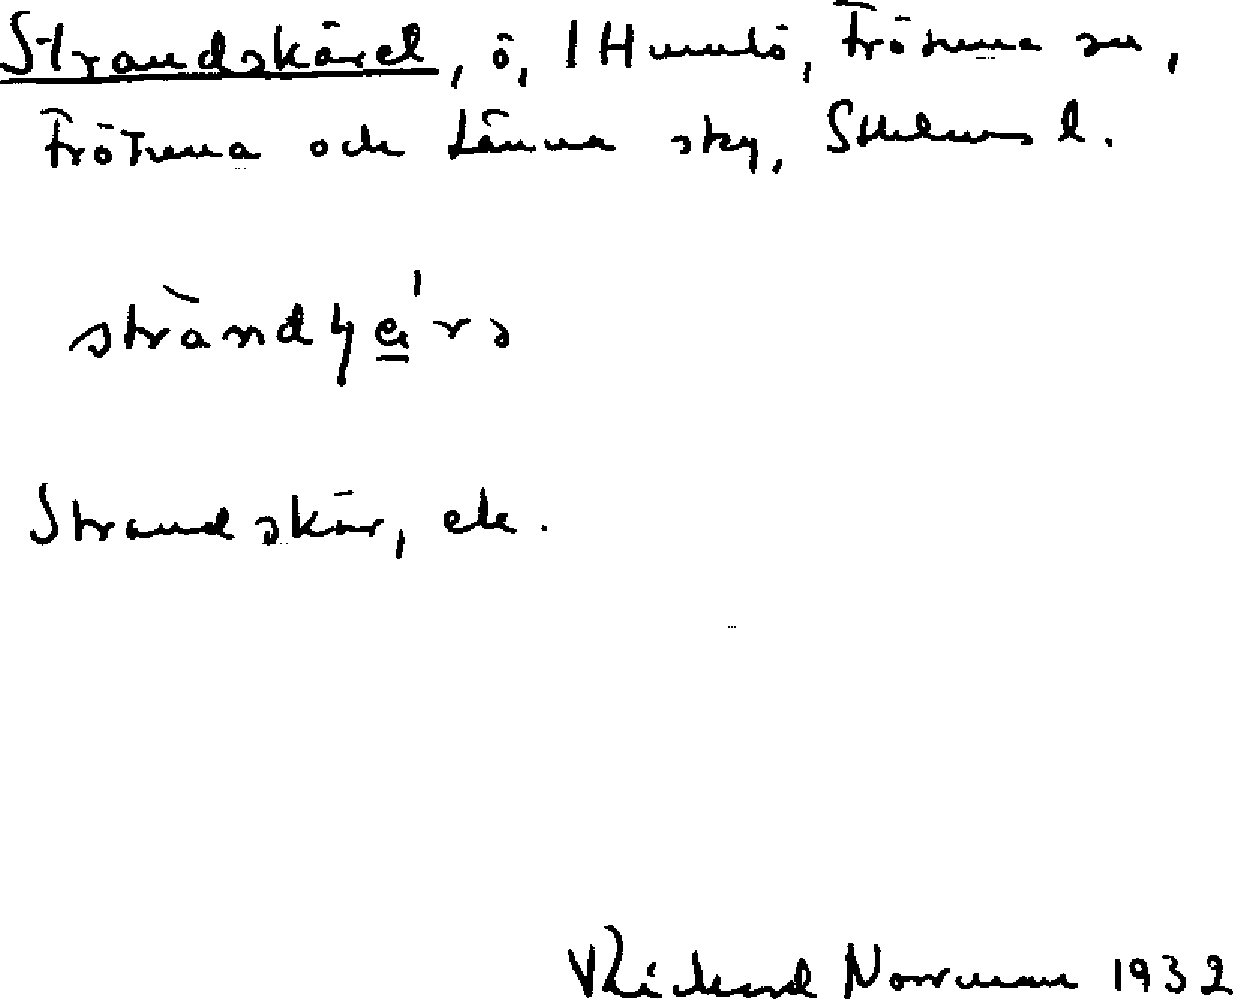 Strandskäret, ö, 1 Humlö, Frötuna sn,
Frötuna och Länna sky, Sthlms l.
strànd
Strandskär, ek.
Rickard Norrman 1932